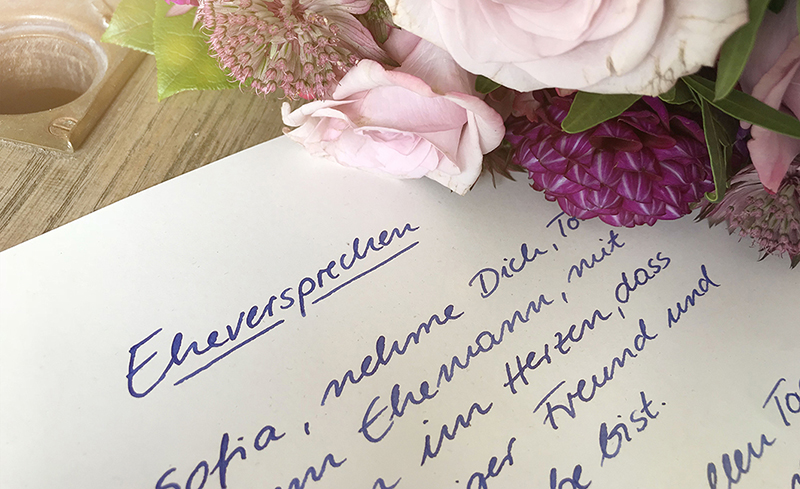 Eheversprechen
Sofia, nehme Dich, To
Ehemann, mit
im Herzen, dass
Freund und
bist.